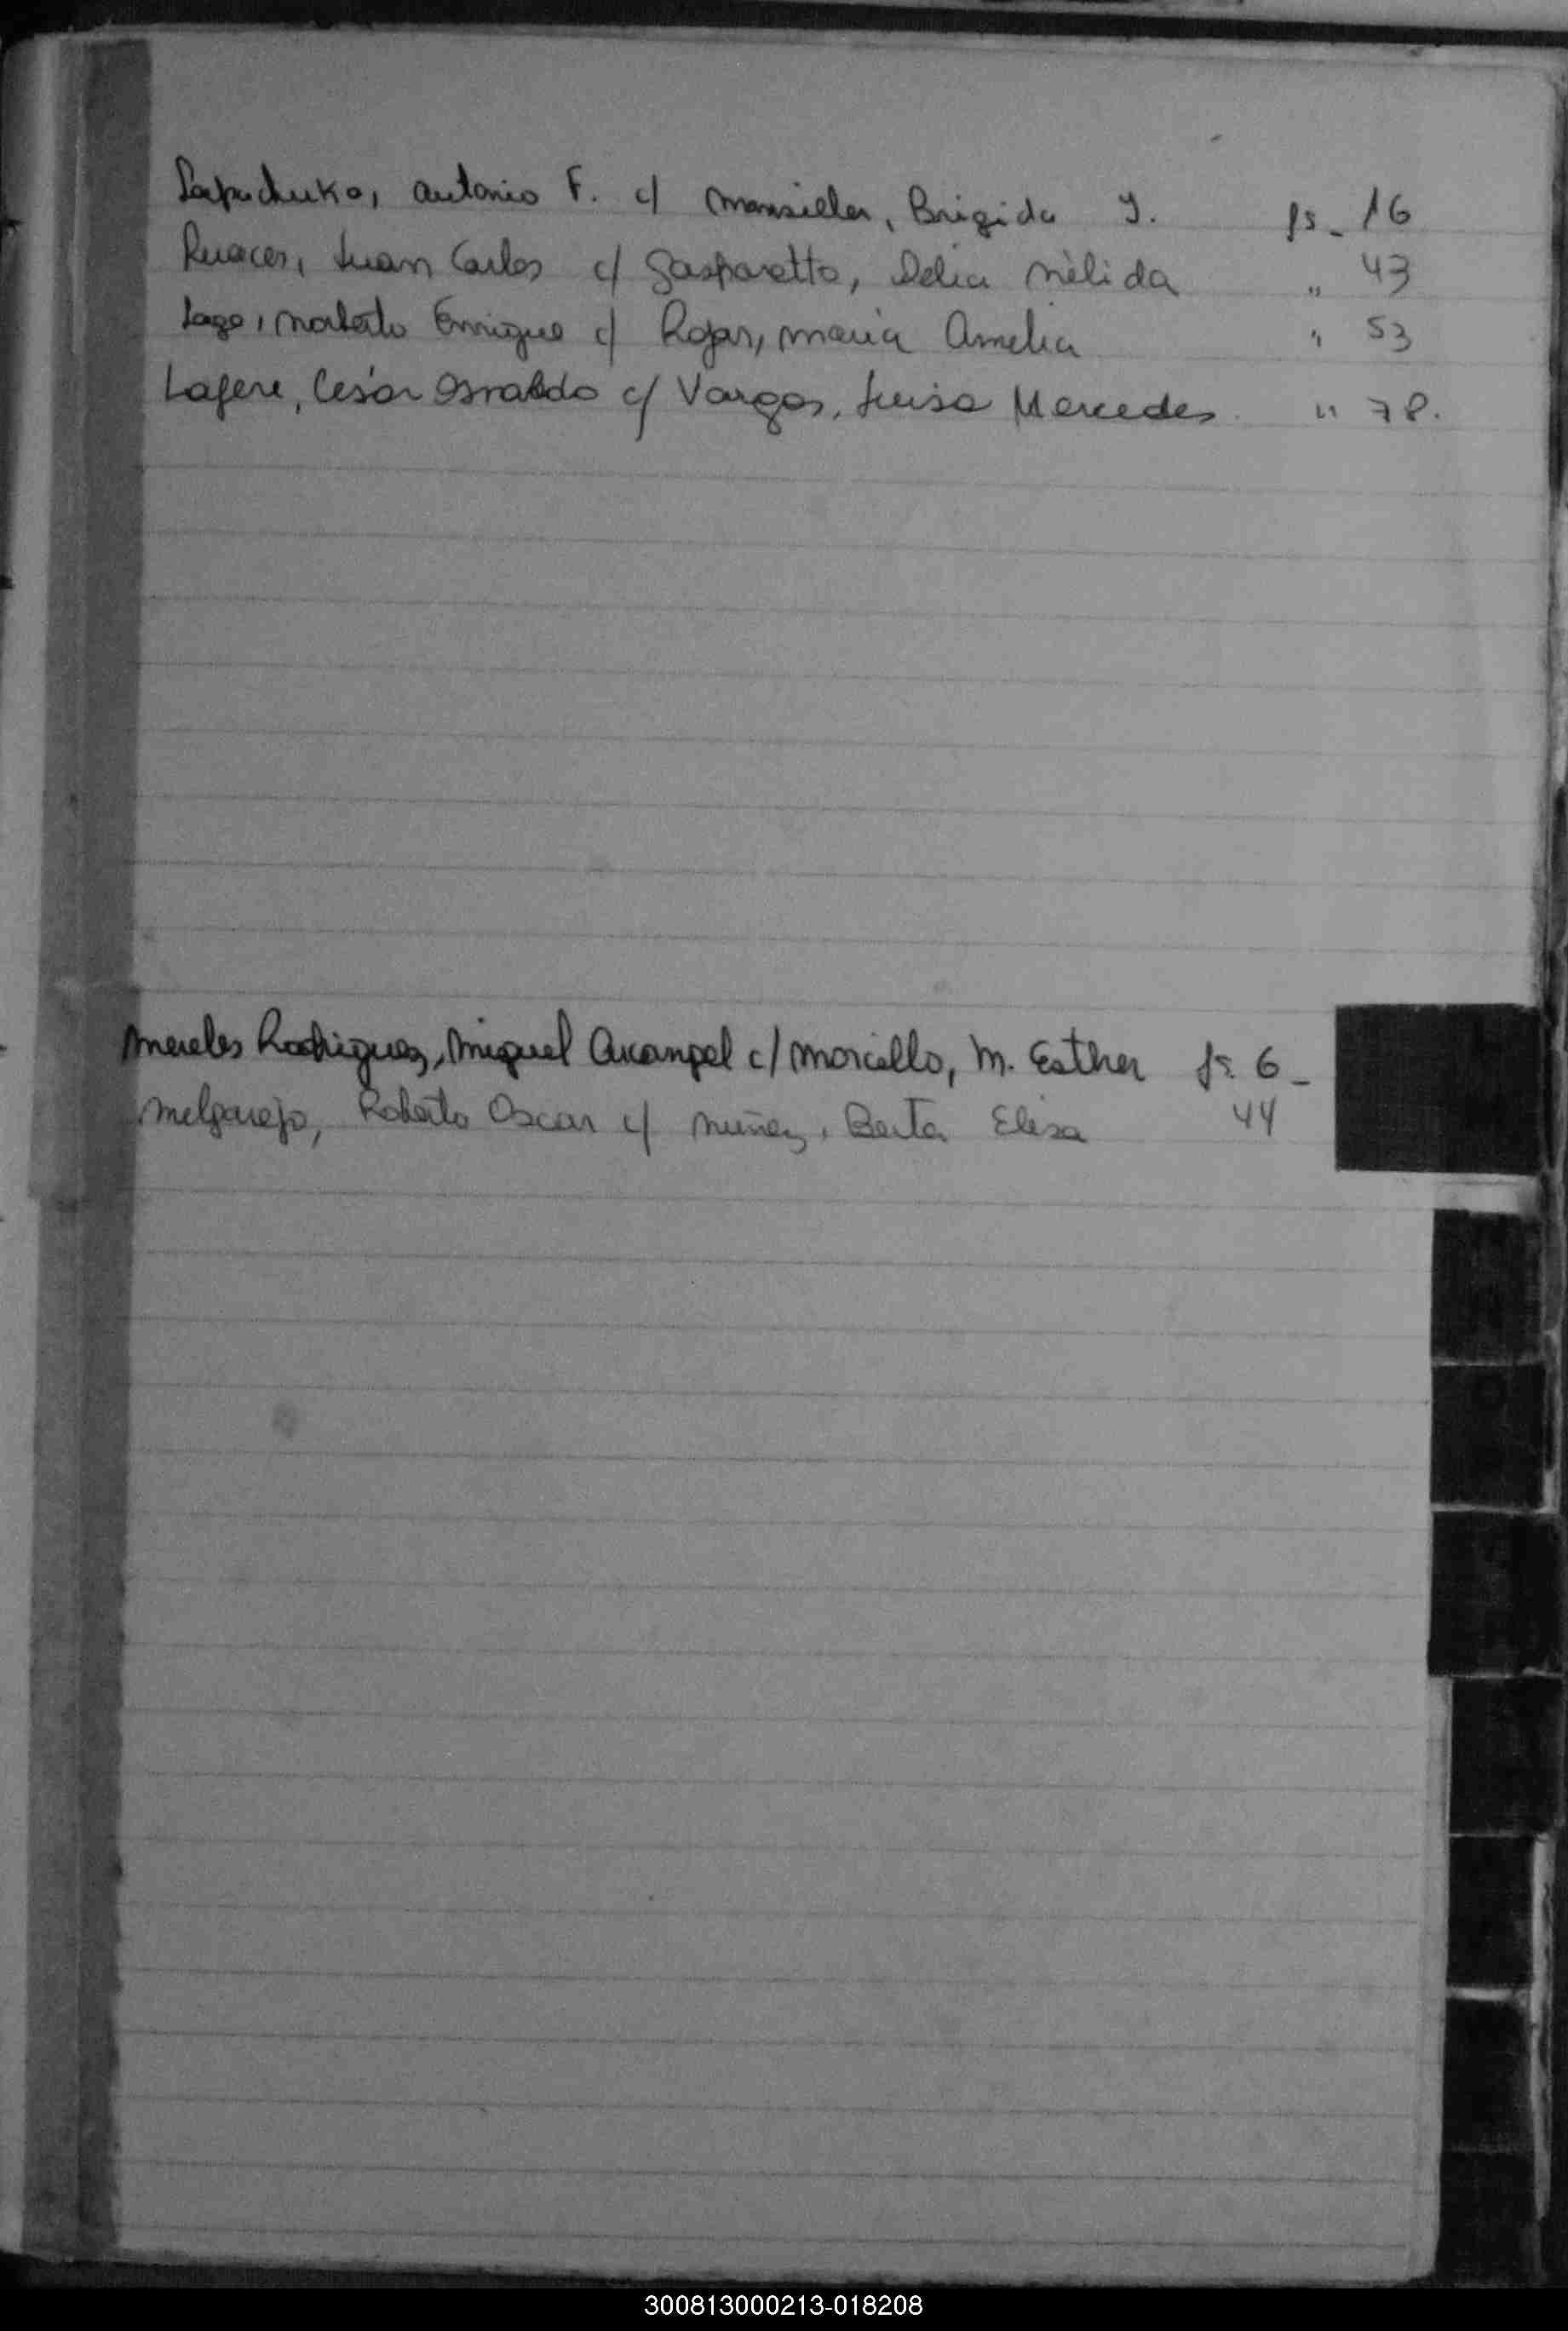 Lapuchuko, Antonio F. c/ Mansilla, Brigida Y. fs_ 16
Juan Carlos c/ Gasparetto, Delia Nélida " 43
Lago, Norberto Enrique c/ Rojas, María Amelia " 53
Lafere, Cesár Osvaldo c/ Vargas, Luisa Mercedes " 78.
Mereles Rodriguez, Miguel Arcangel c/ Morcillo, M. Esther fs. 6_
Melgarejo, Roberto Oscar c/ Nuñez, Berta Elisa 44
300813000213-018208